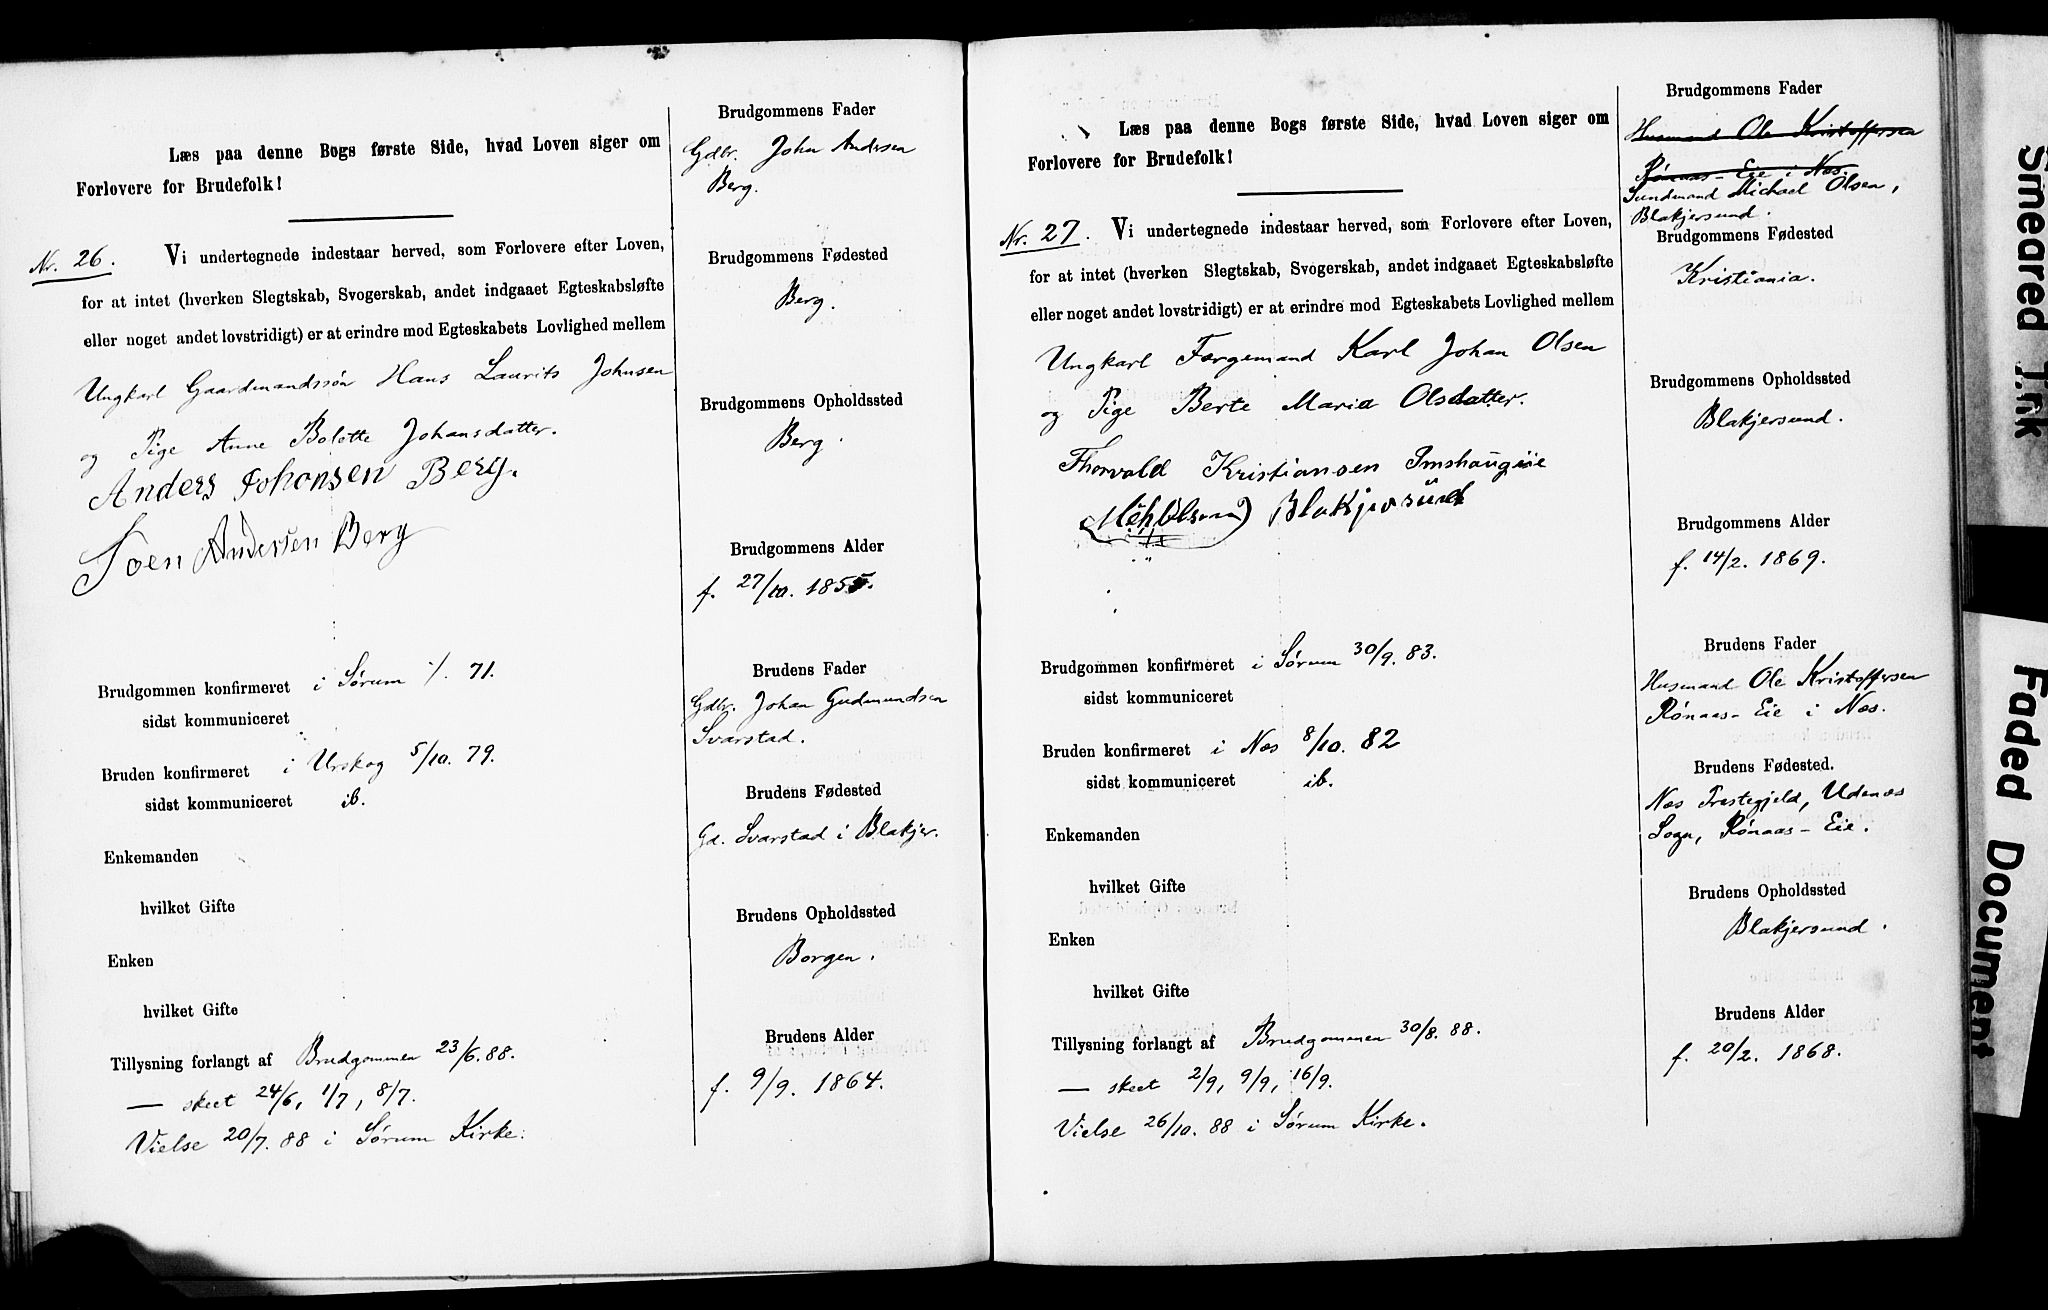 Læs paa denne Bogs første Side, hvad Loven siger om
Forlovere for Brudefolk!
Nr. 26. Vi undertegnede indestaar herved, som Forlovere efter Loven,
for at intet (hverken Slegtskab, Svogerskab, andet indgaaet Egteskabsløfte
eller noget andet lovstridigt) er at erindre mod Egteskabets Lovlighed mellem
Ungkarl Gaardmandssøn Hans Laurits Johnsen
og Pige Anne Bolette Johansdatter.
Anders Johansen Berg.
Andersen Berg
Brudgommen konfirmeret i Sørum -/- 71.
sidst kommuniceret
Bruden konfirmeret i Urskog 5/10. 79.
sidst kommuniceret ib.
Enkemanden
hvilket Gifte
Enken
hvilket Gifte
Tillysning forlangt af Brudgommen 23/6. 88.
— skeet 24/6, 1/7, 8/7.
Vielse 20/7. 88 i Sørum Kirke.
Brudgommens Fader
Gdbr. John Andersen
Berg.
Brudgommens Fødested
Berg.
Brudgommens Opholdssted
Berg.
Brudgommens Alder
f. 27/10. 1855.
Brudens Fader
Gdbr. Johan Gudmundsen
Svarstad.
Brudens Fødested
Gd. Svarstad i Blakjer.
Brudens Opholdssted
Borgen.
Brudens Alder
f. 9/9. 1864.
Læs paa denne Bogs første Side, hvad Loven siger om
Forlovere for Brudefolk!
Nr. 27. Vi undertegnede indestaar herved, som Forlovere efter Loven,
for at intet (hverken Slegtskab, Svogerskab, andet indgaaet Egteskabsløfte
eller noget andet lovstridigt) er at erindre mod Egteskabets Lovlighed mellem
Ungkarl Færgemand Karl Johan Olsen
og Pige Berte Maria Olsdatter.
Thorvald Kristiansen Imshaugeie
Blakjersund
Brudgommen konfirmeret i Sørum 30/9. 83.
sidst kommuniceret
Bruden konfirmeret i Næs 8/10. 82
sidst kommuniceret ib.
Enkemanden
hvilket Gifte
Enken
hvilket Gifte
Tillysning forlangt af Brudgommen 30/8. 88.
— skeet 2/9, 9/9, 16/9.
Vielse 26/10. 88 i Sørum Kirke.
Brudgommens Fader
Husmand Ole Kristoffersen
Rønaas-Eie i Næs.
Sundmand Michael Olsen,
Blakjersund.
Brudgommens Fødested
Kristiania.
Brudgommens Opholdssted
Blakjersund.
Brudgommens Alder
f. 14/2. 1869.
Brudens Fader
Husmand Ole Kristoffersen
Rønaas-Eie i Næs.
Brudens Fødested.
Næs Prestegjeld, Udenæs
Sogn, Rønaas-Eie.
Brudens Opholdssted
Blakjersund.
Brudens Alder
f. 20/2. 1868.
Smeared Ink
Faded Document